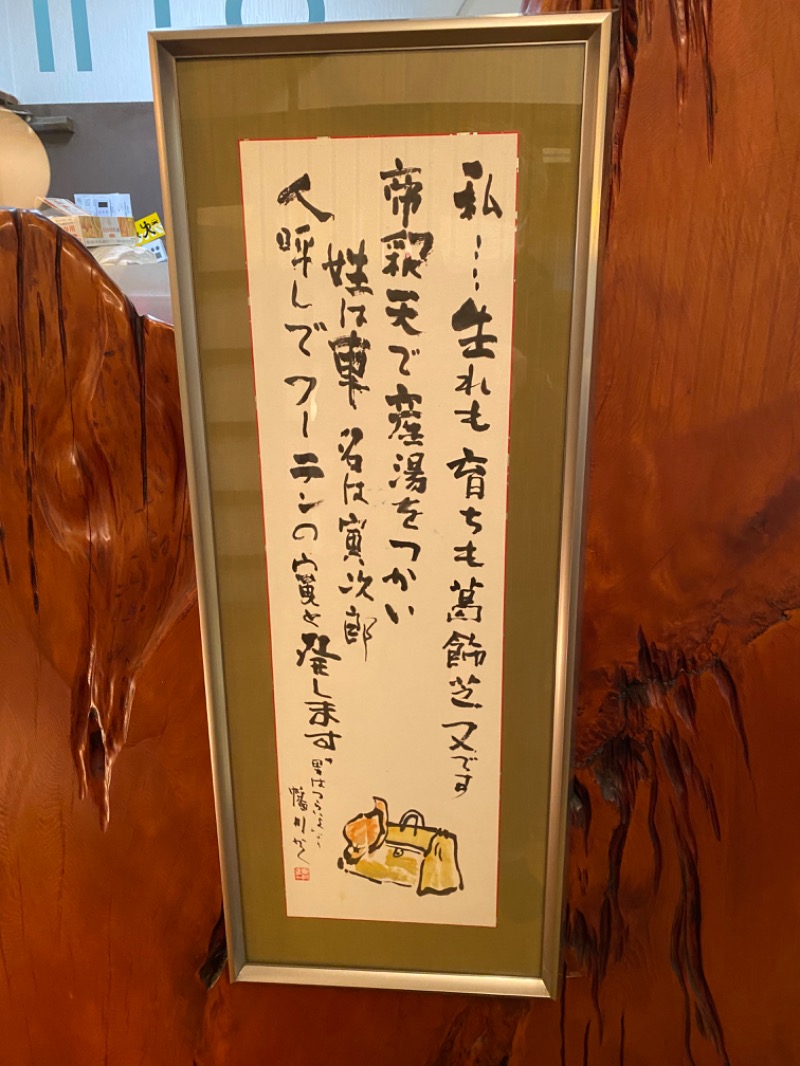 私…生れも育ちも葛飾芝又です
帝釈天で産湯をつかい
姓は車 名は寅次郎
人呼んでフーテンの寅と発します
男はつらいよ